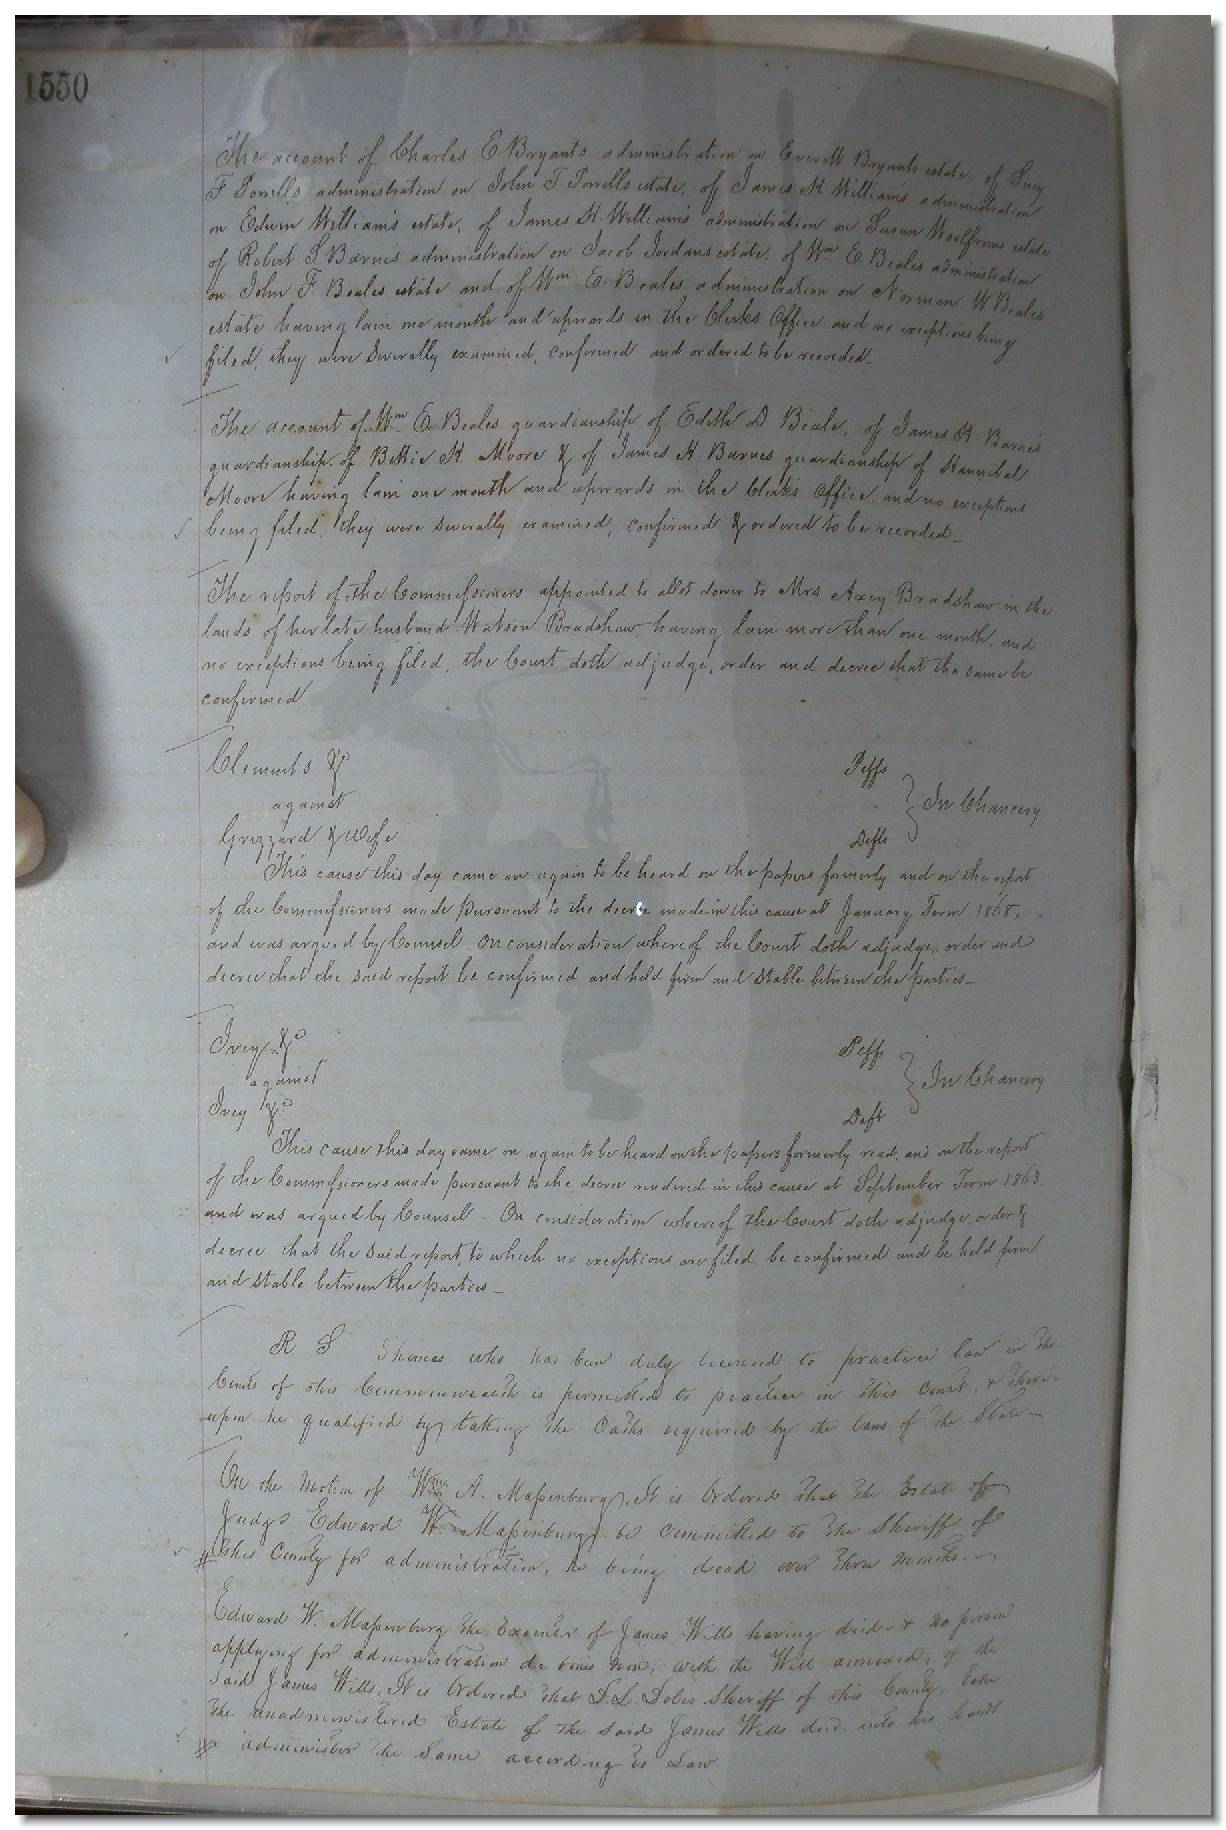 1550
The account of Charles E Bryants administration on Everett Bryants estate, of Lucy
F Powells administration on John T Powells estate, of James H William's administration
on Edwin William's estate, of James H. William's administration on Susan Woolfrows estate
of Robert S Barnes administration on Jacob Jordans estate, of Wm E. Beales administration
on John F. Beales estate and of Wm E. Beales administration on Norman W Beales
estate having lain one month and upwards in the Clerks Office and no exceptions being
filed, they were severally examined, confirmed and ordered to be recorded_
The account of Wm E. Beales guardianship of Edith D Beale, of James H. Barnes
guardianship of Bettie H. Moore & of James H. Barnes guardianship of Hannibal
Moore having lain one month and upwards in the Clerks Office and no exceptions
being filed, they were severally examined, confirmed & ordered to be recorded_
The report of the Commissioners appointed to allot dower to Mrs Axey Bradshaw in the
lands of her late husband Watson Bradshaw, having lain more than one month, and
no exceptions being filed, the Court doth adjudge, order and decree that the same be
confirmed
Clements &c Plffs
against } In Chancery
Grizzard & Wife Defts
This cause this day came on again to be heard on the papers formerly and on the report
of the Commissioners made pursuant to the decree made in this cause at January Term 1868,
and was argued by Counsel. On consideration whereof the Court doth adjudge, order and
decree that the said report be confirmed and held firm and stable between the parties_
Ivey &c Plff
against } In Chancery
Ivey &c Deft
This cause this day came on again to be heard on the papers formerly read, and on the report
of the Commissioners made pursuant to the decree rendered in this cause at September Term 1863
and was argued by Counsel. On consideration whereof the Court doth adjudge, order &
decree that the said report, to which no exceptions are filed be confirmed and be held firm
and stable between the parties_
R S Thomas who has been duly licensed to practice law in the
Courts of this Commonwealth is permitted to practice in this Court, & there
upon he qualified by taking the Oaths required by the laws of the State_
On the motion of Wm A. Massenburg, It is Ordered that the Estate of
Judge Edward W. Massenburg be committed to the Sheriff of
this County for administration, he being dead over three months._
Edward W. Massenburg the Executor of James Wills having died & no person
applying for administration de bonis non, with the Will annexed, of the
said James Wills, It is Ordered that L. L. Doles Sheriff of this County, take
the unadministered Estate of the said James Wills decd. into his hands
& administer the same according to Law.